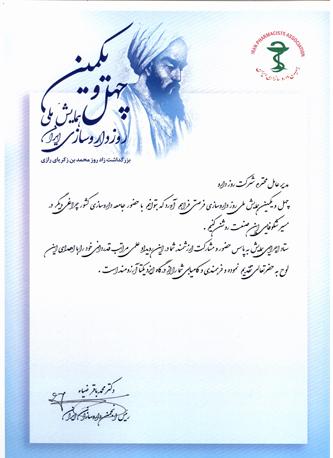 IRAN PHARMACISTS ASSOCIATION
انجمن داروسازان ایران
چهل و یکمین
همایش ملی
روز داروسازی ایران
بزرگداشت زاد روز محمد بن زکریای رازی
مدیر عامل محترم شرکت روز دارو
چهل و یکمین همایش ملی روز داروسازی فرصتی فراهم آورد که بتوانیم با حضور جامعه داروسازی کشور چراغی دیگر در
مسیر شکوفایی این صنعت روشن کنیم.
ستاد اجرایی همایش به پاس حضور و مشارکت ارزشمند شما در این رویداد ملی مراتب قدردانی خود را با اهدای این
لوح به حضرتعالی تقدیم نموده و خرمندی و کامیابی شما را از درگاه ایزد یکتا آرزومند است.
دکتر محمد باقر ضیاء
رییس انجمن داروسازان ایران